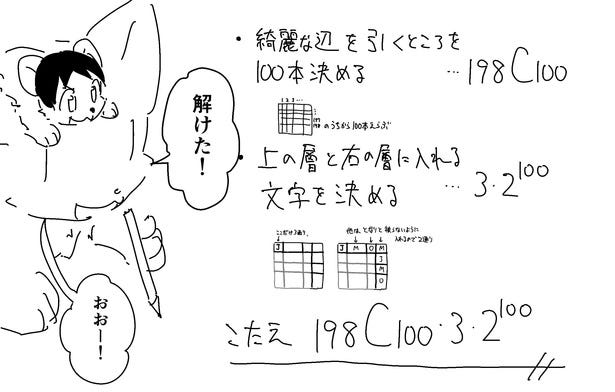 ・綺麗な辺を引くところを
100本決める …198C100
1 2 3 …
のうちから100本えらぶ
・上の層と右の層に入れる
文字を決める … 3・2^100
ここだけ3通り、
J
他は、となりと被らないように
入れるので2通り
J M O M
J
M
O
こたえ 198C100・3・2^100
解けた！
おおー！